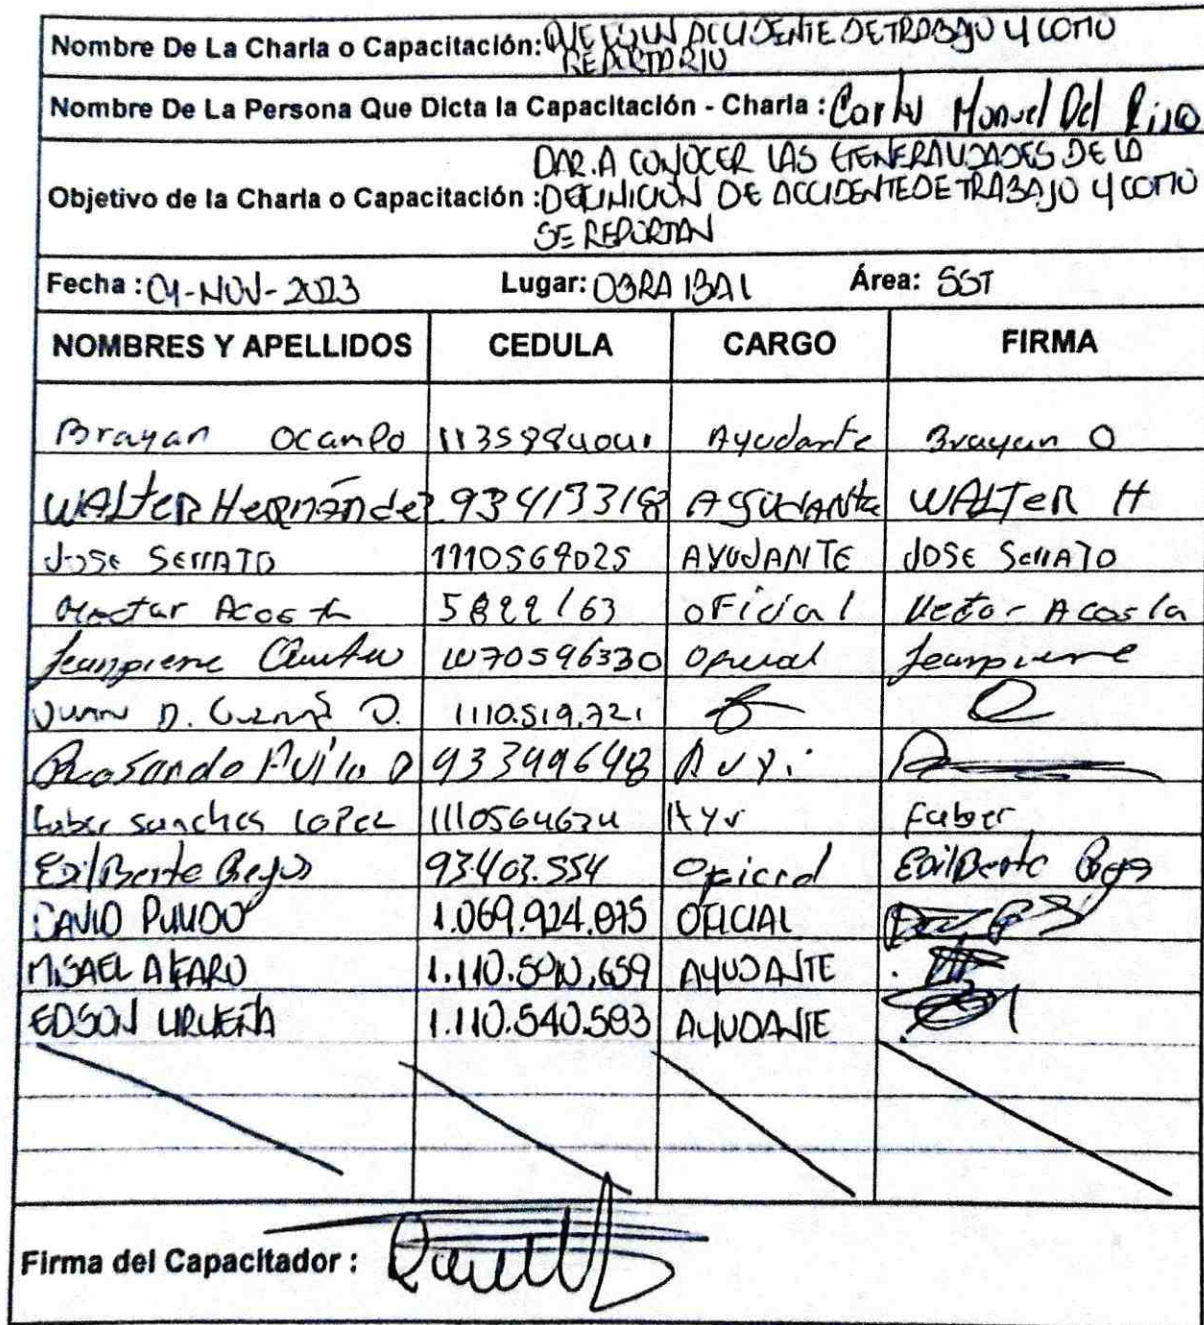 Nombre De La Charla o Capacitación: QUE ES UN ACCIDENTE DE TRABAJO Y COMO
REPORTARLO
Nombre De La Persona Que Dicta la Capacitación - Charla : Carlos Manuel Del
DAR A CONOCER LAS GENERALIDADES DE LA
Objetivo de la Charla o Capacitación : DEFINICION DE ACCIDENTE DE TRABAJO Y COMO
SE REPORTAN
Fecha : 01-NOV-2023 Lugar: OBRA IBAL Área: SST
NOMBRES Y APELLIDOS CEDULA CARGO FIRMA
Brayan Ocampo Ayudante Brayan O
WALTER Hernández WALTER H
JOSE SERRATO 1110569025 AYUDANTE JOSE SERRATO
Hector Acosta 5822163 OFicial Hector Acosta
Jeanpierre 1070596330 Oficial Jeanpierre
Juan D. 1.110.519.721
Avila
Faber sanches LOPEZ 1110564634 Ayu Faber
Edilberto Reyes 93.403.554 Oficial Edilberto Reyes
DAVID PULIDO 1.069.924.075 OFICIAL
MISAEL ALFARO AYUDANTE
EDSON URUEÑA 1.110.540.583 AYUDANTE
Firma del Capacitador :